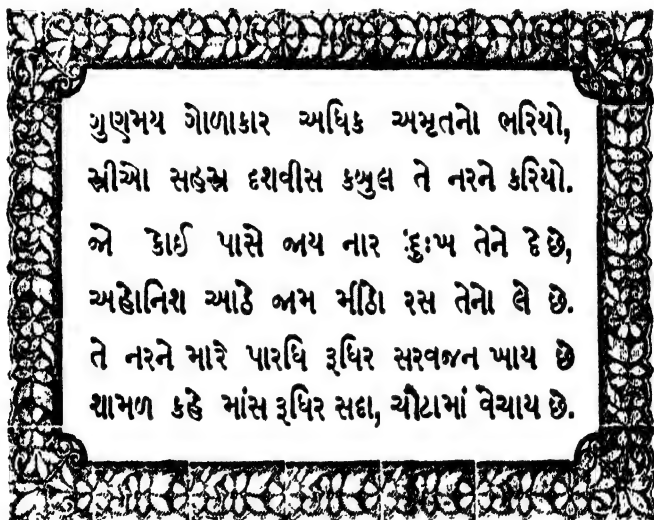 ગુણમય ગોળાકાર અધિક અમૃતનો ભરિયો,
સ્ત્રીઓ સહસ્ર દશવીસ કબુલ તે નરને કરિયો.
જો કોઈ પાસે જાય નાર દુઃખ તેને દે છે,
અહોનિશ આઠે જામ મીઠો રસ તેનો લે છે.
તે નરને મારે પારધિ રૂધિર સરવજન ખાય છે
શામળ કહે માંસ રૂધિર સદા, ચૌટામાં વેચાય છે.